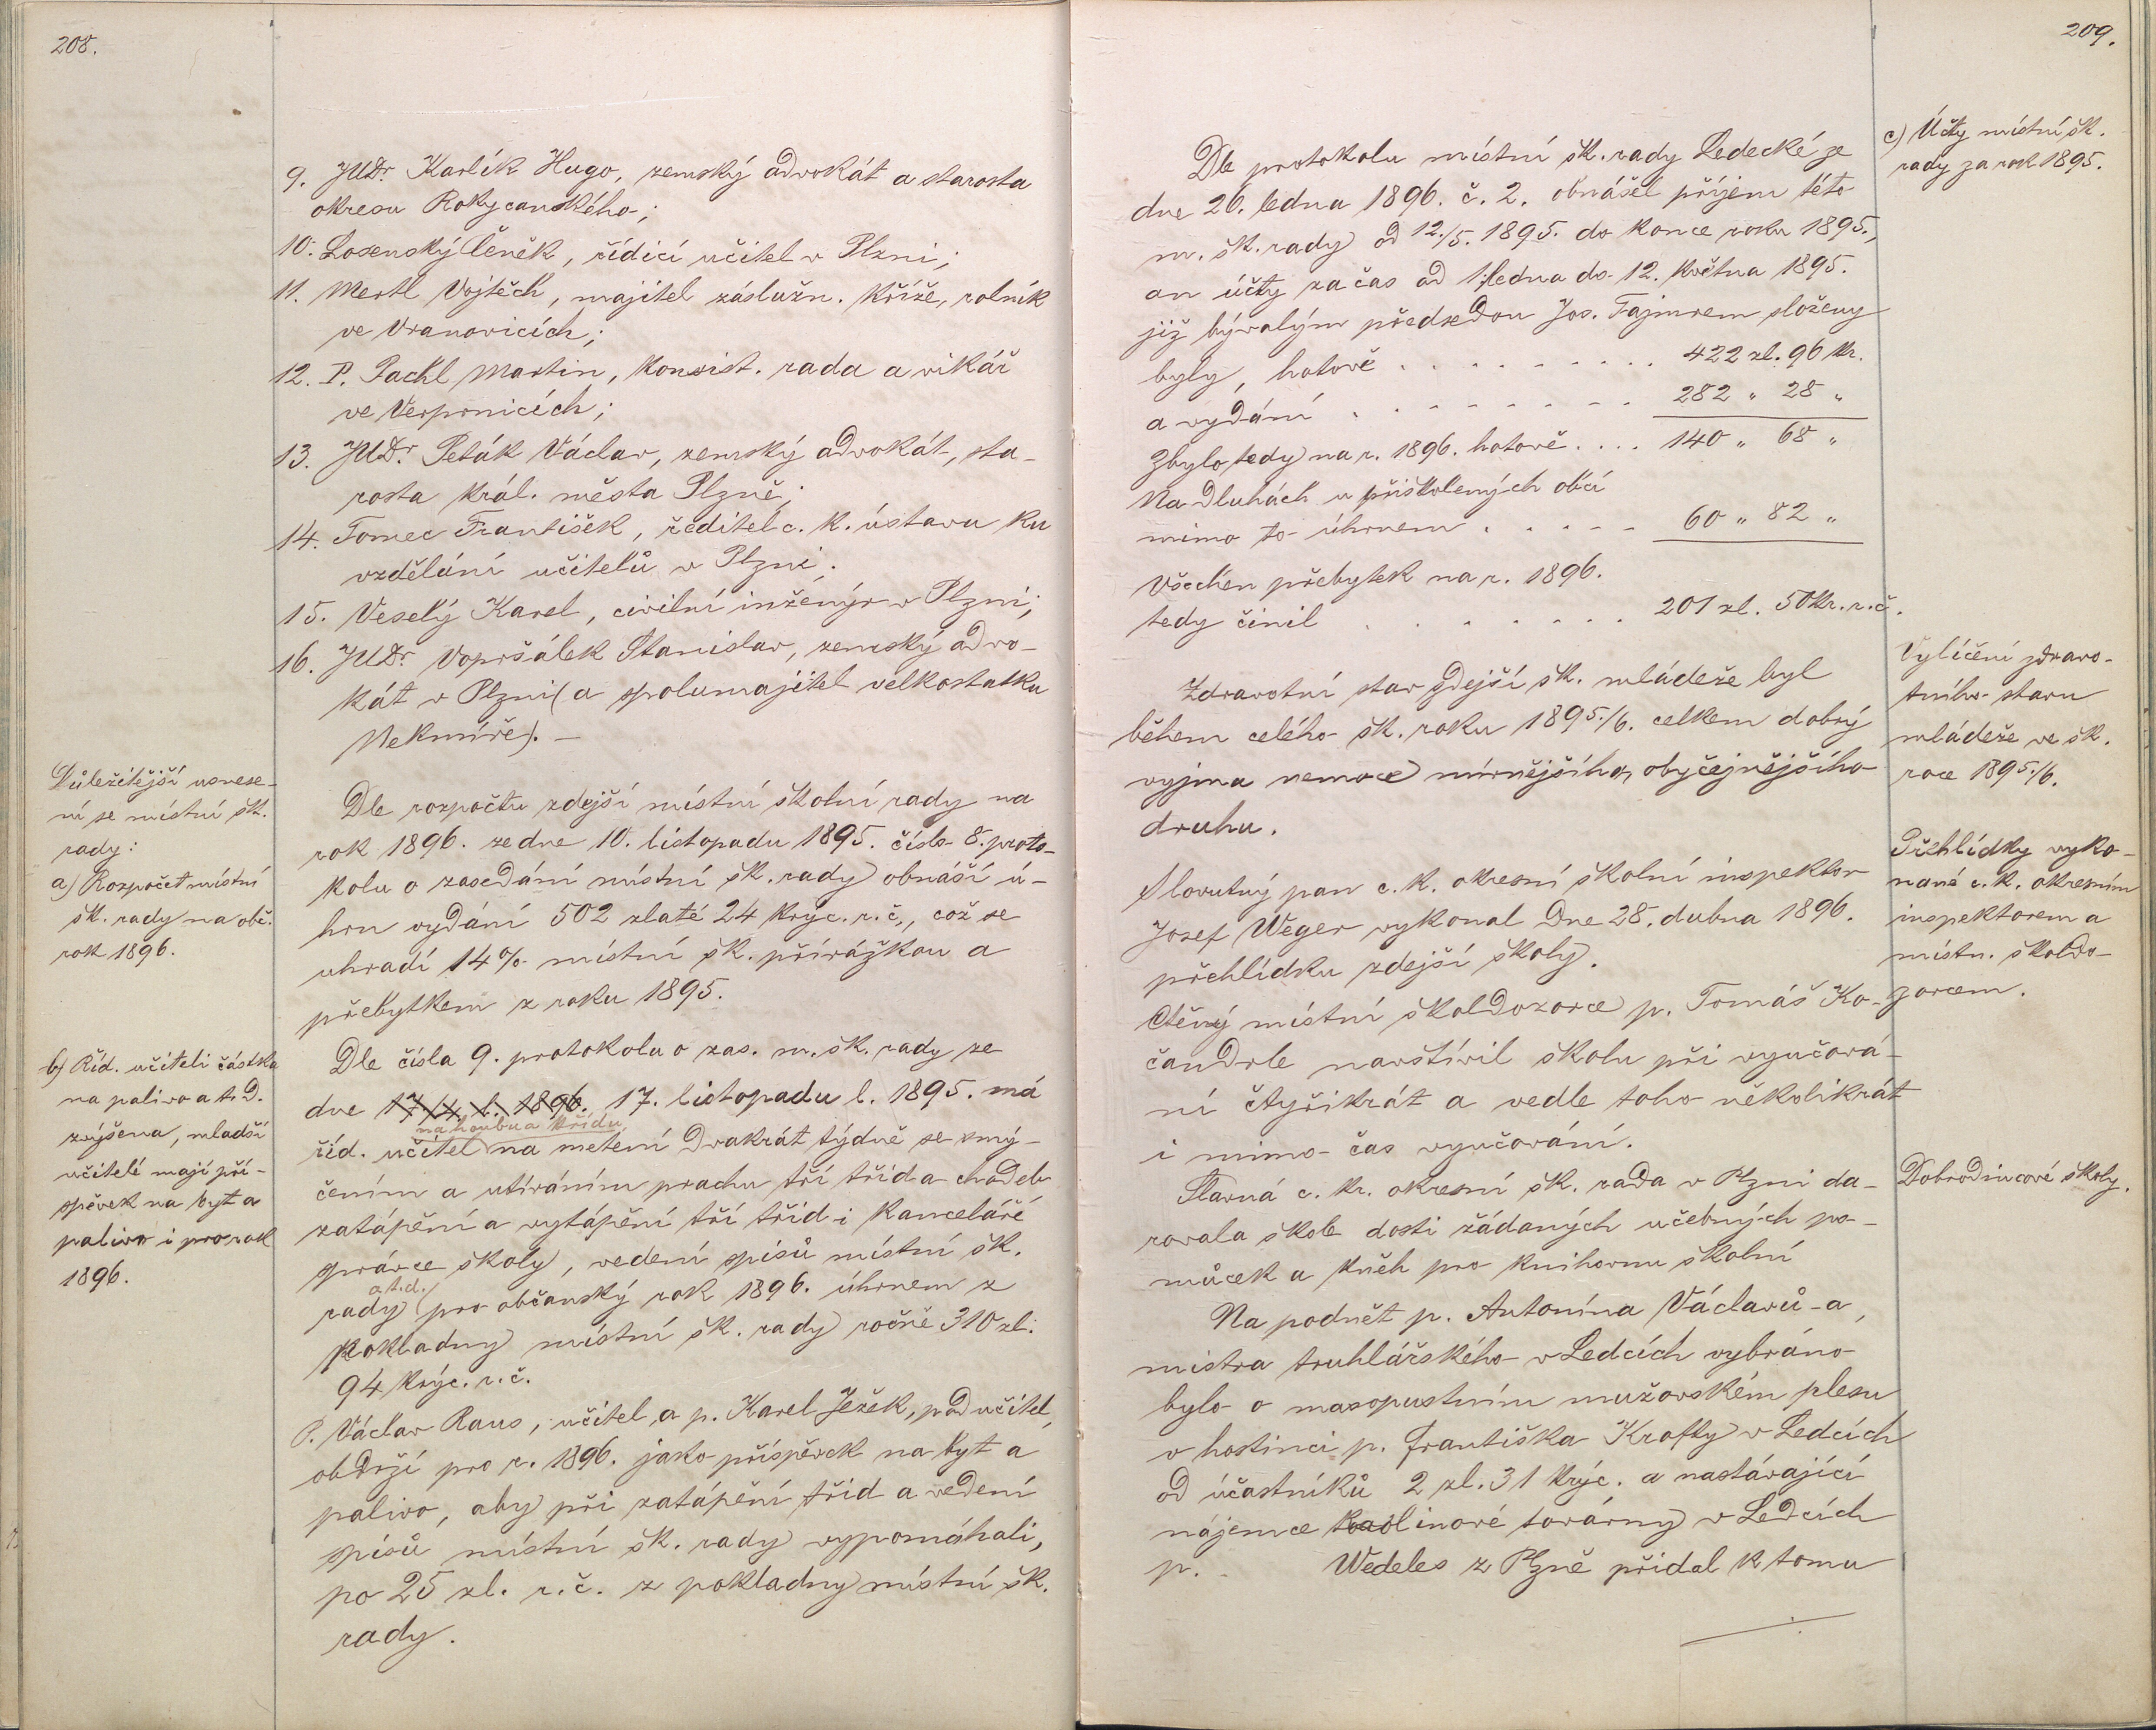 208.
9. JUDr. Karlík Hugo, zemský advokát a starosta
okresu Rokycanského;
10. Losenský Čeněk, řídicí učitel v Plzni;
11. Mertl Vojtěch, majitel záslužn. kříže, rolník
ve Vranovicích;
12. P. Pachl Martin, konsist. rada a vikář
ve Vejprnicích;
13. JUDr. Peták Václav, zemský advokát, sta-
rosta král. města Plzně;
14. Tomec František, ředitel c. k. ústavu ku
vzdělání učitelů v Plzni;
15. Veselý Karel, civilní inženýr v Plzni;
16. JUDr. Vopršálek Stanislav, zemský advo-
kát v Plzni (a spolumajitel velkostatku
Nekmíře). –
Důležitější usnese-
ní se místní šk.
rady:
a) Rozpočet místní
šk. rady na obč.
rok 1896.
Dle rozpočtu zdejší místní školní rady na
rok 1896. ze dne 10. listopadu 1895. číslo 8. proto-
kolu o zasedání místní šk. rady obnáší ú-
hrn vydání 502 zlaté 24 krýc. r. č., což se
uhradí 14% místní šk. přirážkou a
přebytkem z roku 1895.
b) Říd. učiteli částka
na palivo a t. d.
zvýšena, mladší
učitelé mají pří-
spěvek na byt a
palivo i pro rok
1896.
Dle čísla 9. protokolu o zas. m. šk. rady ze
dne 17/4. l. 1896. 17. listopadu l. 1895. má
na houbu a křídu,
říd. učitel na metení dvakrát týdně se smý-
čením a utíráním prachu tří tříd a chodeb
zatápění a vytápění tří tříd i kanceláře
správce školy, vedení spisů místní šk.
a t. d.
rady pro občanský rok 1896. úhrnem z
pokladny místní šk. rady ročně 310 zl.
94 krýc. r. č.
P. Václav Raus, učitel, a p. Karel Ježek, podučitel,
obdrží pro r. 1896. jako příspěvek na byt a
palivo, aby při zatápění tříd a vedení
spisů místní šk. rady vypomáhali,
po 25 zl. r. č. z pokladny místní šk.
rady.
209.
c) Účty místní šk.
rady za rok 1895.
Dle protokolu místní šk. rady Ledecké ze
dne 26. ledna 1896. č. 2. obnášel příjem této
m. šk. rady od 12./5. 1895. do konce roku 1895.,
an účty za čas od 1. ledna do 12. května 1895.
již bývalým předsedou Jos. Fajmrem složeny
byly, hotově . . . . . . . . . 422 zl. 96 kr.
a vydání . . . . . . . . . 282 " 28 "
Zbylo tedy na r. 1896. hotově . . . . 140 " 68 "
Na dluhách u přiškolených obcí
mimo to úhrnem . . . . . 60 " 82 "
Všechen přebytek na r. 1896.
tedy činil . . . . . . . 201 zl. 50 kr. r. č.
Vylíčení zdravo-
tního stavu
mládeže ve šk.
roce 1895./6.
Zdravotní stav zdejší šk. mládeže byl
během celého šk. roku 1895./6. celkem dobrý
vyjma nemoce mírnějšího, obyčejnějšího
druhu.
Přehlídky vyko-
nané c. k. okresním
inspektorem a
místn. školdo-
zorcem.
Slovutný pan c. k. okresní školní inspektor
Josef Weger vykonal dne 28. dubna 1896.
přehlídku zdejší školy.
Ctěný místní školdozorce p. Tomáš Ko-
čandrle navštívil školu při vyučová-
ní čtyřikrát a vedle toho několikrát
i mimo čas vyučování.
Dobrodincové školy.
Slavná c. k. okresní šk. rada v Plzni da-
rovala škole dosti žádaných učebných po-
můcek a kněh pro knihovnu školní
Na podnět p. Antonína Václavů-a,
mistra truhlářského v Ledcích vybráno
bylo o masopustním mužovském plesu
v hostinci p. Františka Krafty v Ledcích
od účastníků 2 zl. 31 krýc. a nastávající
nájemce kaolinové továrny v Ledcích
p. Wedeles z Plzně přidal k tomu